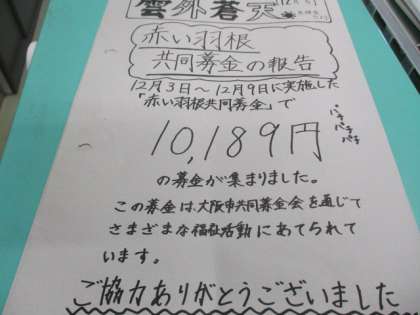 雲外蒼天
赤い羽根
共同募金の報告
12月3日～12月9日に実施した
「赤い羽根共同募金」で
10,189円
パチ
パチ
パチ
の募金が集まりました。
この募金は、大阪市共同募金会を通じて
さまざまな福祉活動にあてられて
います。
ご協力ありがとうございました